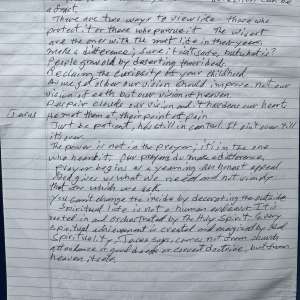 adrift.
There are two ways to view life - those who
protect it or those who pursue it. The wisest
are the ones with the most life in their years
make a difference; sure it not sade, but what is?
People grow old by deserting their ideals
Reclaiming the curiosity of your childhood
As we get older our vision should improve. not our
vision of earth but our vision of heaven
Despair clouds our vision and it hardens our heart
Jesus meet them at their point of pain
Just be patient, he's still in control. It ain't over till
it's over
The power is not in the prayer; it's in the one
who hears it. Our prayers do make a difference,
prayer begins as a yearning, an honest appeal
God gives us what we need and not simply
that for which we ask
You can't change the inside by decorating the outside
Spiritual life is not a human endeavor. It is
rooted in and orchestrated by the Holy Spirit. Every
spiritual achievement is created and energized by God
Spirituality, Jesus says, comes not from church
attendance or good deeds or correct doctrine, but from
heaven itself.